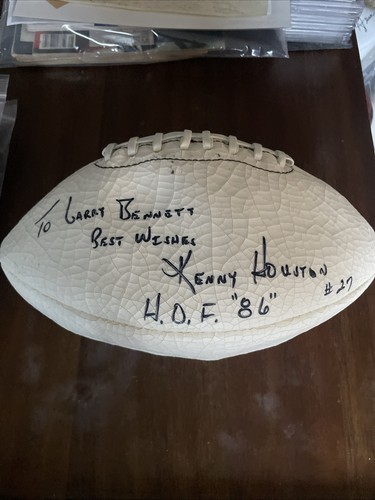 To Larry Bennett
Best Wishes
Kenny Houston
#27
H.O.F. "86"